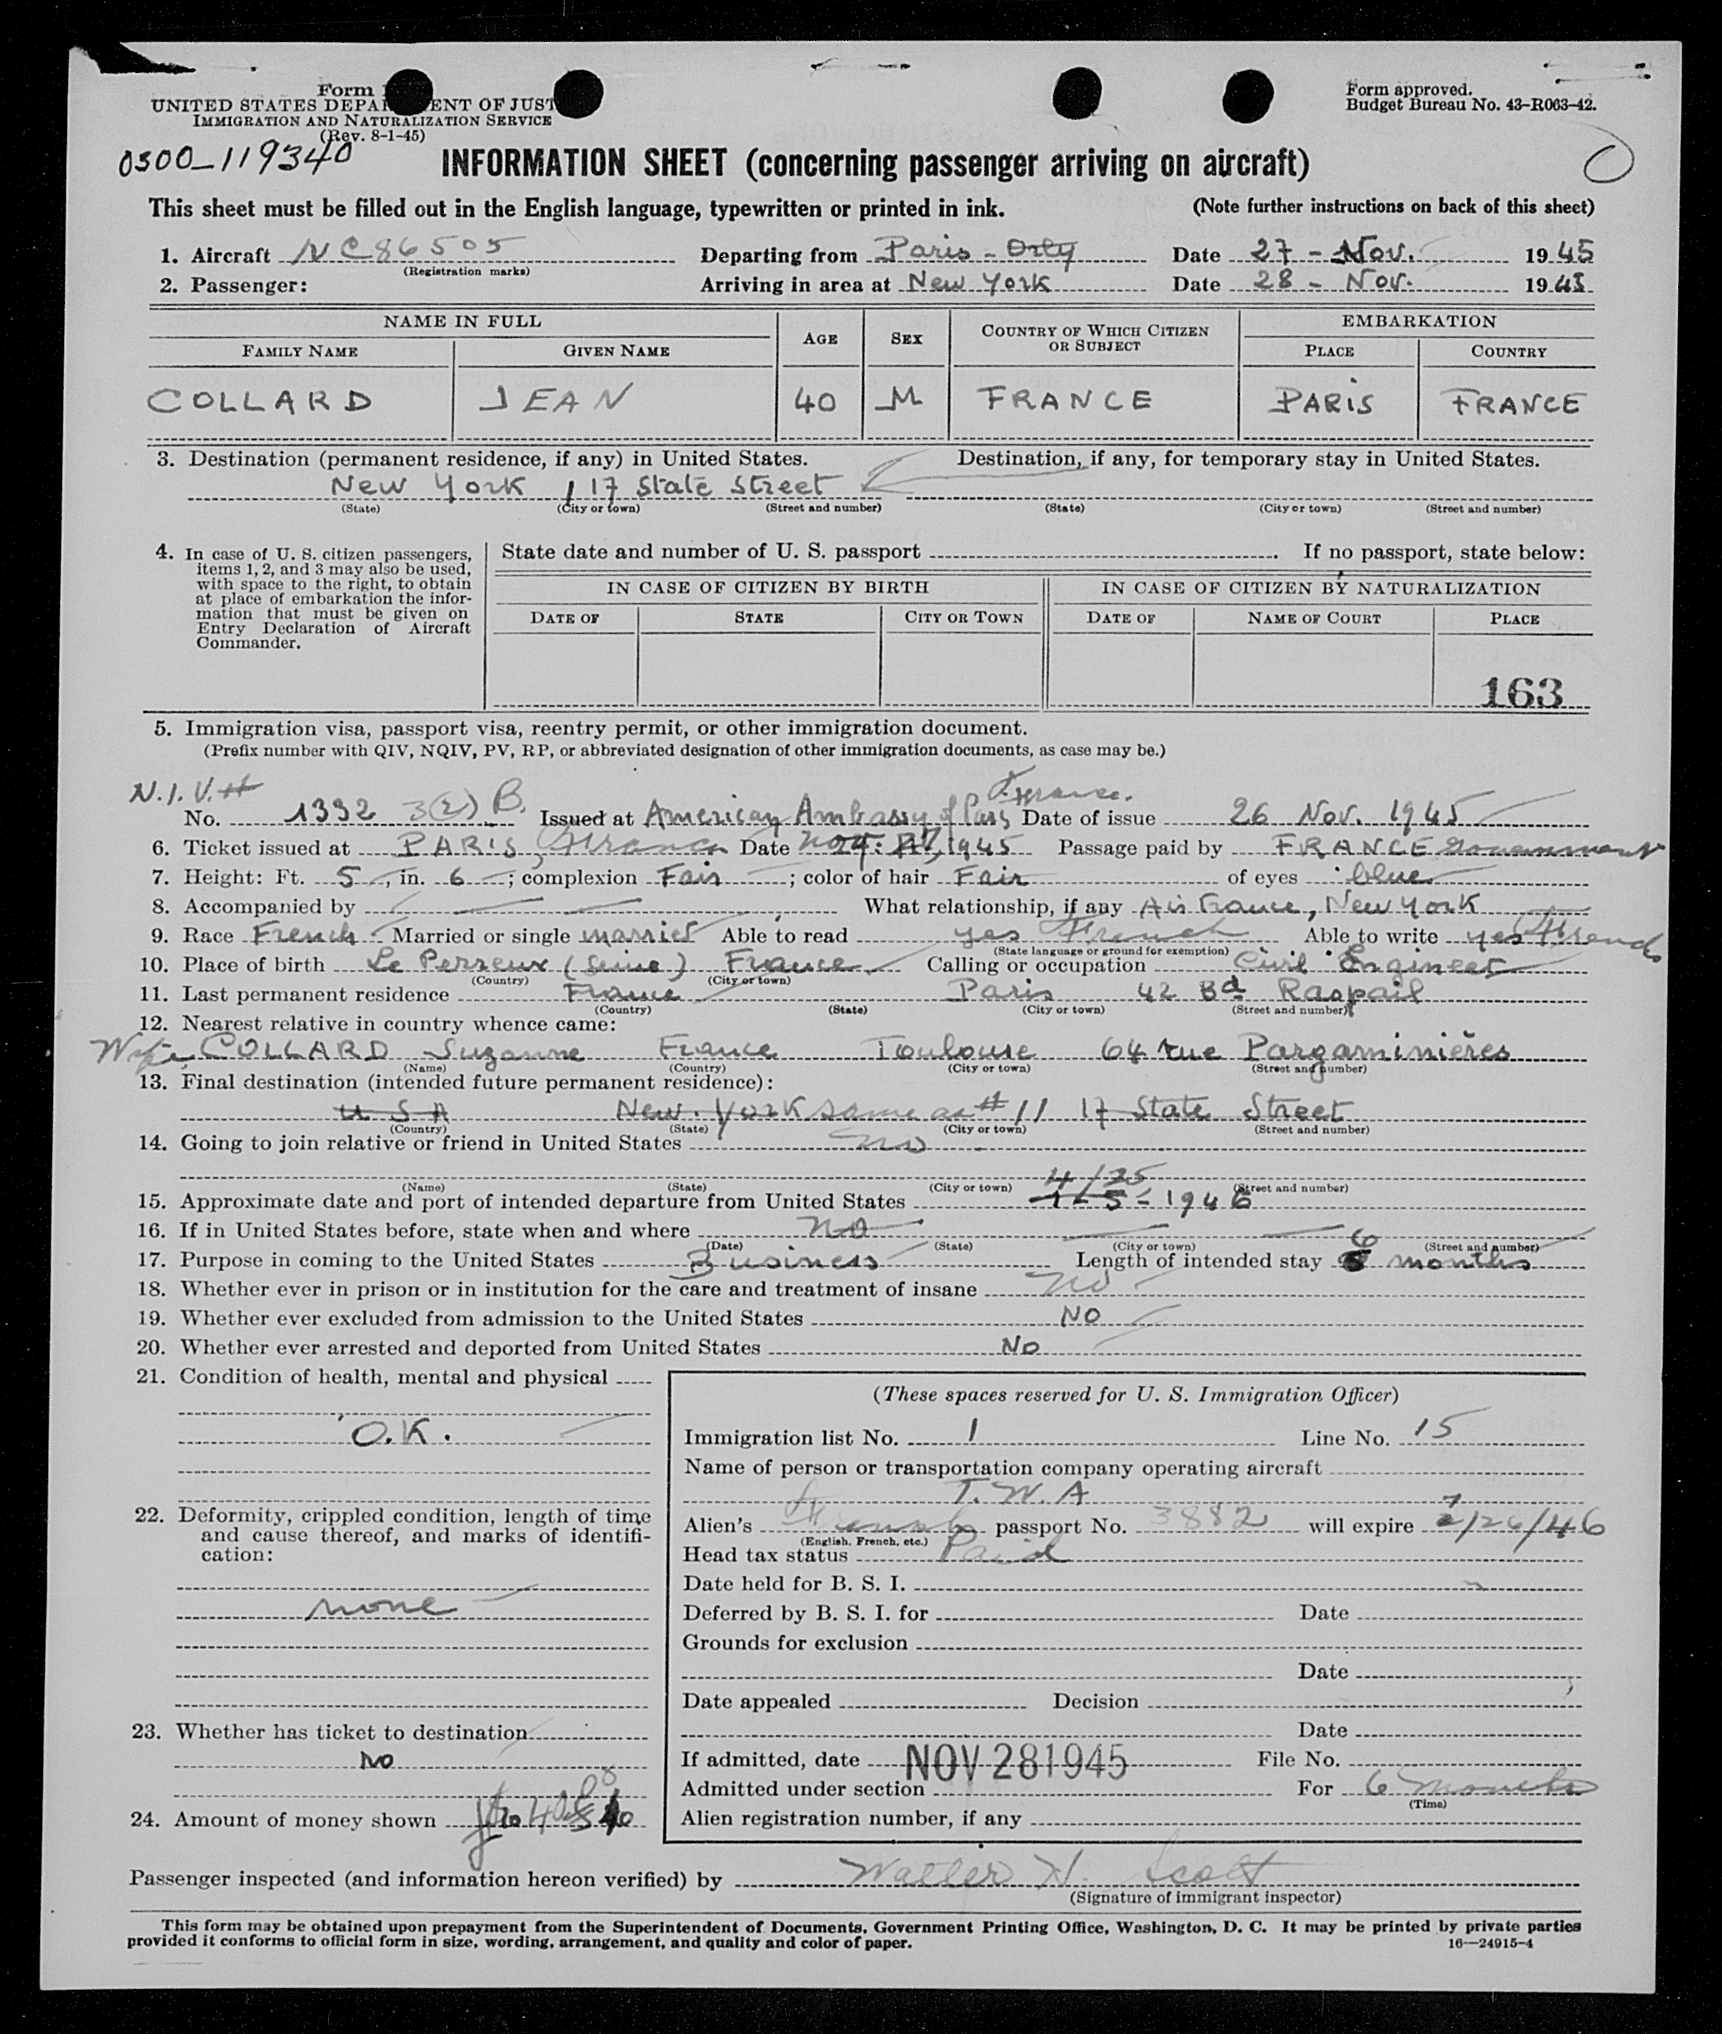 Form
UNITED STATES DEPA ENT OF JUST
IMMIGRATION AND NATURALIZATION SERVICE
(Rev. 8-1-45)
Form approved.
Budget Bureau No. 43-R063-42.
0300-119340
INFORMATION SHEET (concerning passenger arriving on aircraft)
This sheet must be filled out in the English language, typewritten or printed in ink. (Note further instructions on back of this sheet)
1. Aircraft NC86505 Departing from Paris - Orly Date 27 - Nov. 1945
(Registration marks)
2. Passenger: Arriving in area at New York Date 28 - Nov. 1945
NAME IN FULL AGE SEX COUNTRY OF WHICH CITIZEN OR SUBJECT EMBARKATION
FAMILY NAME GIVEN NAME PLACE COUNTRY
COLLARD JEAN 40 M FRANCE PARIS FRANCE
3. Destination (permanent residence, if any) in United States. Destination, if any, for temporary stay in United States.
New York 17 State Street
(State) (City or town) (Street and number) (State) (City or town) (Street and number)
4. In case of U. S. citizen passengers, items 1, 2, and 3 may also be used, with space to the right, to obtain at place of embarkation the information that must be given on Entry Declaration of Aircraft Commander.
State date and number of U. S. passport . If no passport, state below:
IN CASE OF CITIZEN BY BIRTH IN CASE OF CITIZEN BY NATURALIZATION
DATE OF STATE CITY OR TOWN DATE OF NAME OF COURT PLACE
163
5. Immigration visa, passport visa, reentry permit, or other immigration document.
(Prefix number with QIV, NQIV, PV, RP, or abbreviated designation of other immigration documents, as case may be.)
N.I.V.# France.
No. 1332 3(2) B. Issued at American Ambassy of Paris Date of issue 26 Nov. 1945
6. Ticket issued at PARIS, France Date Nov. 27, 1945 Passage paid by FRANCE Government
7. Height: Ft. 5, in. 6; complexion Fair; color of hair Fair of eyes blue
8. Accompanied by What relationship, if any Air France, New York
9. Race French Married or single married Able to read yes French Able to write yes French
(State language or ground for exemption)
10. Place of birth Le Perreux (Seine) France Calling or occupation Civil Engineer
(Country) (City or town)
11. Last permanent residence France Paris 42 Bd Raspail
(Country) (State) (City or town) (Street and number)
12. Nearest relative in country whence came:
Wife, COLLARD Suzanne France Toulouse 64 rue Pargaminières
(Name) (Country) (City or town) (Street and number)
13. Final destination (intended future permanent residence):
U S A New York same as # 11 17 State Street
(Country) (State) (City or town) (Street and number)
14. Going to join relative or friend in United States no
(Name) (State) (City or town) (Street and number)
4/25
15. Approximate date and port of intended departure from United States 1-5-1946
16. If in United States before, state when and where no
(Date) (State) (City or town) (Street and number)
17. Purpose in coming to the United States Business Length of intended stay 6 months
18. Whether ever in prison or in institution for the care and treatment of insane no
19. Whether ever excluded from admission to the United States NO
20. Whether ever arrested and deported from United States No
21. Condition of health, mental and physical
O.K.
22. Deformity, crippled condition, length of time and cause thereof, and marks of identification:
none
23. Whether has ticket to destination
NO
24. Amount of money shown
(These spaces reserved for U. S. Immigration Officer)
Immigration list No. 1 Line No. 15
Name of person or transportation company operating aircraft
T.W.A
Alien's French passport No. 3882 will expire 7/26/46
(English, French, etc.)
Head tax status Paid
Date held for B. S. I.
Deferred by B. S. I. for Date
Grounds for exclusion
Date
Date appealed Decision
Date
If admitted, date NOV 28 1945 File No.
Admitted under section For 6 months
(Time)
Alien registration number, if any
Passenger inspected (and information hereon verified) by Walter H. Scott
(Signature of immigrant inspector)
This form may be obtained upon prepayment from the Superintendent of Documents, Government Printing Office, Washington, D. C. It may be printed by private parties
provided it conforms to official form in size, wording, arrangement, and quality and color of paper. 16—24915-4